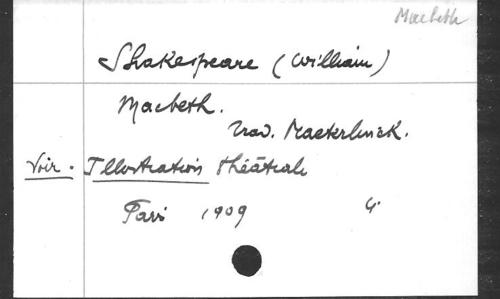 Macbeth
Shakespeare (William)
Macbeth.
Trad. Maeterlinck.
Voir. Illustration théâtrale
Paris 1909